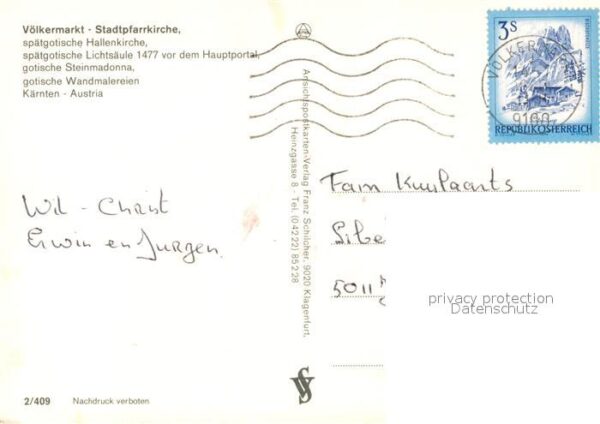 Völkermarkt - Stadtpfarrkirche,
spätgotische Hallenkirche,
spätgotische Lichtsäule 1477 vor dem Hauptportal,
gotische Steinmadonna,
gotische Wandmalereien
Kärnten - Austria
3s
REPUBLIK ÖSTERREICH
VÖLKERMARKT
9100
Ansichtspostkarten-Verlag Franz Schilcher, 9020 Klagenfurt,
Heinzgasse 8 - Tel. (04222) 85228
Wil - Christ
Erwin en Jurgen
Fam
Sibe
5011
privacy protection
Datenschutz
2/409
Nachdruck verboten